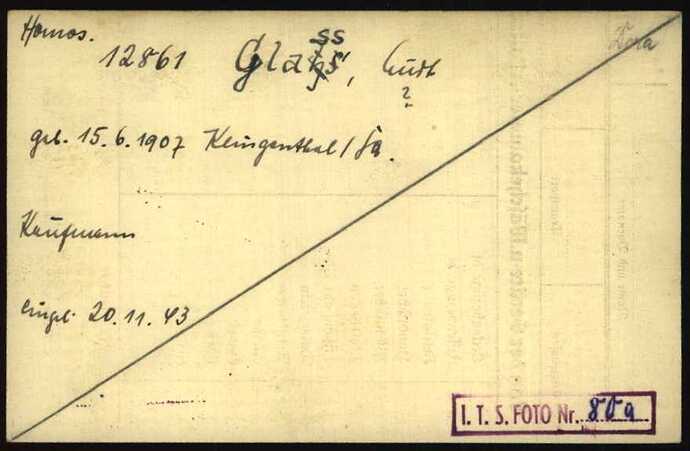 Homos.
Dora
12861 Glass,
?
geb. 15.6.1907 Klingenthal/Sa.
Kaufmann
Eingel. 20.11.43
I. T. S. FOTO Nr. 80a